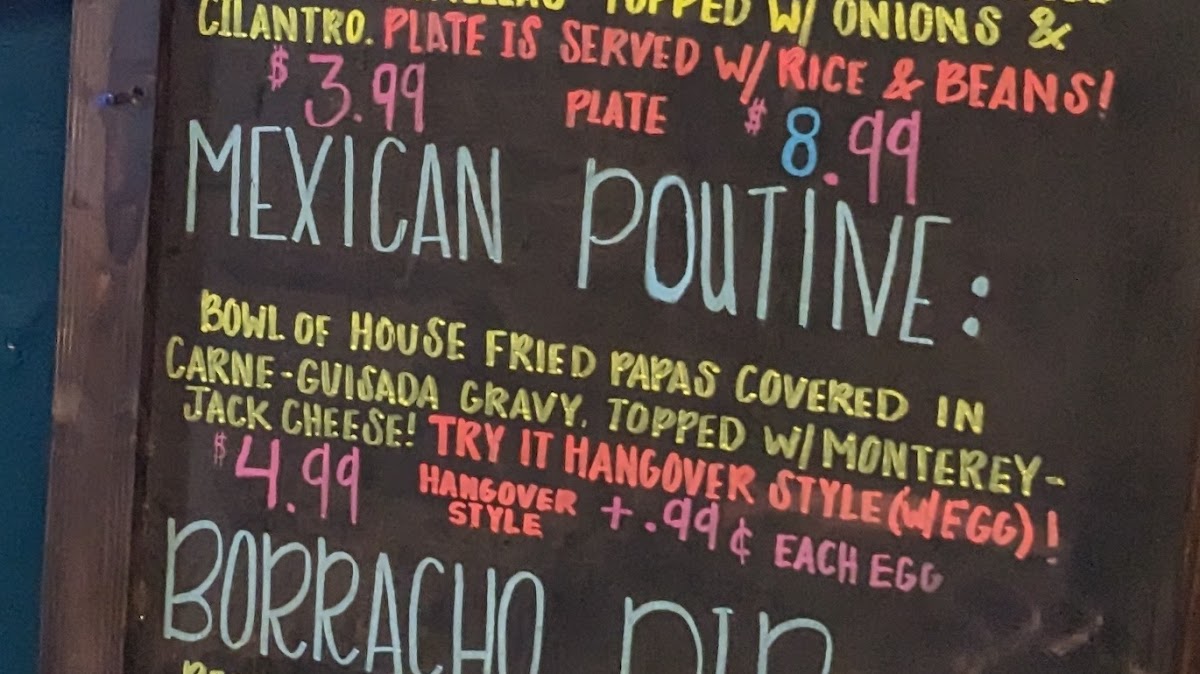 TOPPED W/ ONIONS &
CILANTRO. PLATE IS SERVED W/ RICE & BEANS!
$3.99 PLATE $8.99
MEXICAN POUTINE:
BOWL OF HOUSE FRIED PAPAS COVERED IN
CARNE-GUISADA GRAVY, TOPPED W/ MONTEREY-
JACK CHEESE! TRY IT HANGOVER STYLE (W/EGG)!
$4.99 HANGOVER STYLE + .99¢ EACH EGG
BORRACHO DIP